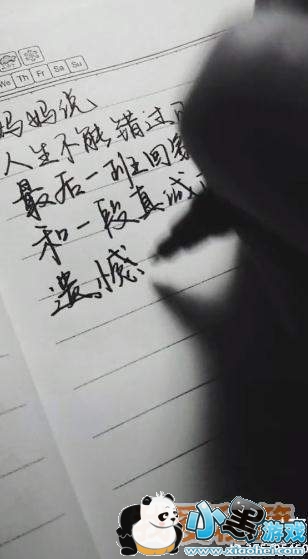 We Th Fr Sa Su
妈妈说
人生不能错过
最后一班回家
和一段真诚
遗憾
小黑游戏
www.xiaohei.com